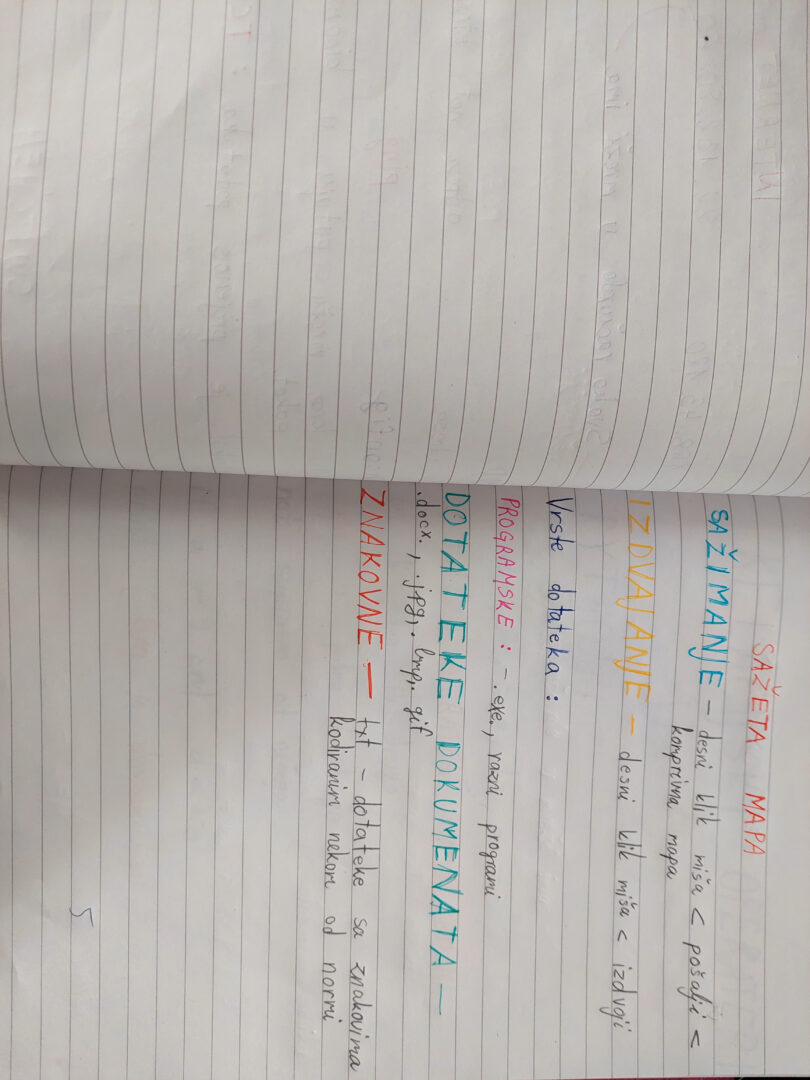 SAŽETA MAPA
SAŽIMANJE – desni klik miša < pošalji <
komprima mapa
IZDVAJANJE – desni klik miša < izdvoji
Vrste datoteka :
PROGRAMSKE : – .exe., razni programi
DOTATEKE DOKUMENATA –
.docx., .jpg,. bmp,. gif
ZNAKOVNE – txt – dotateke sa znakovima
kodiranim nekom od normi
5